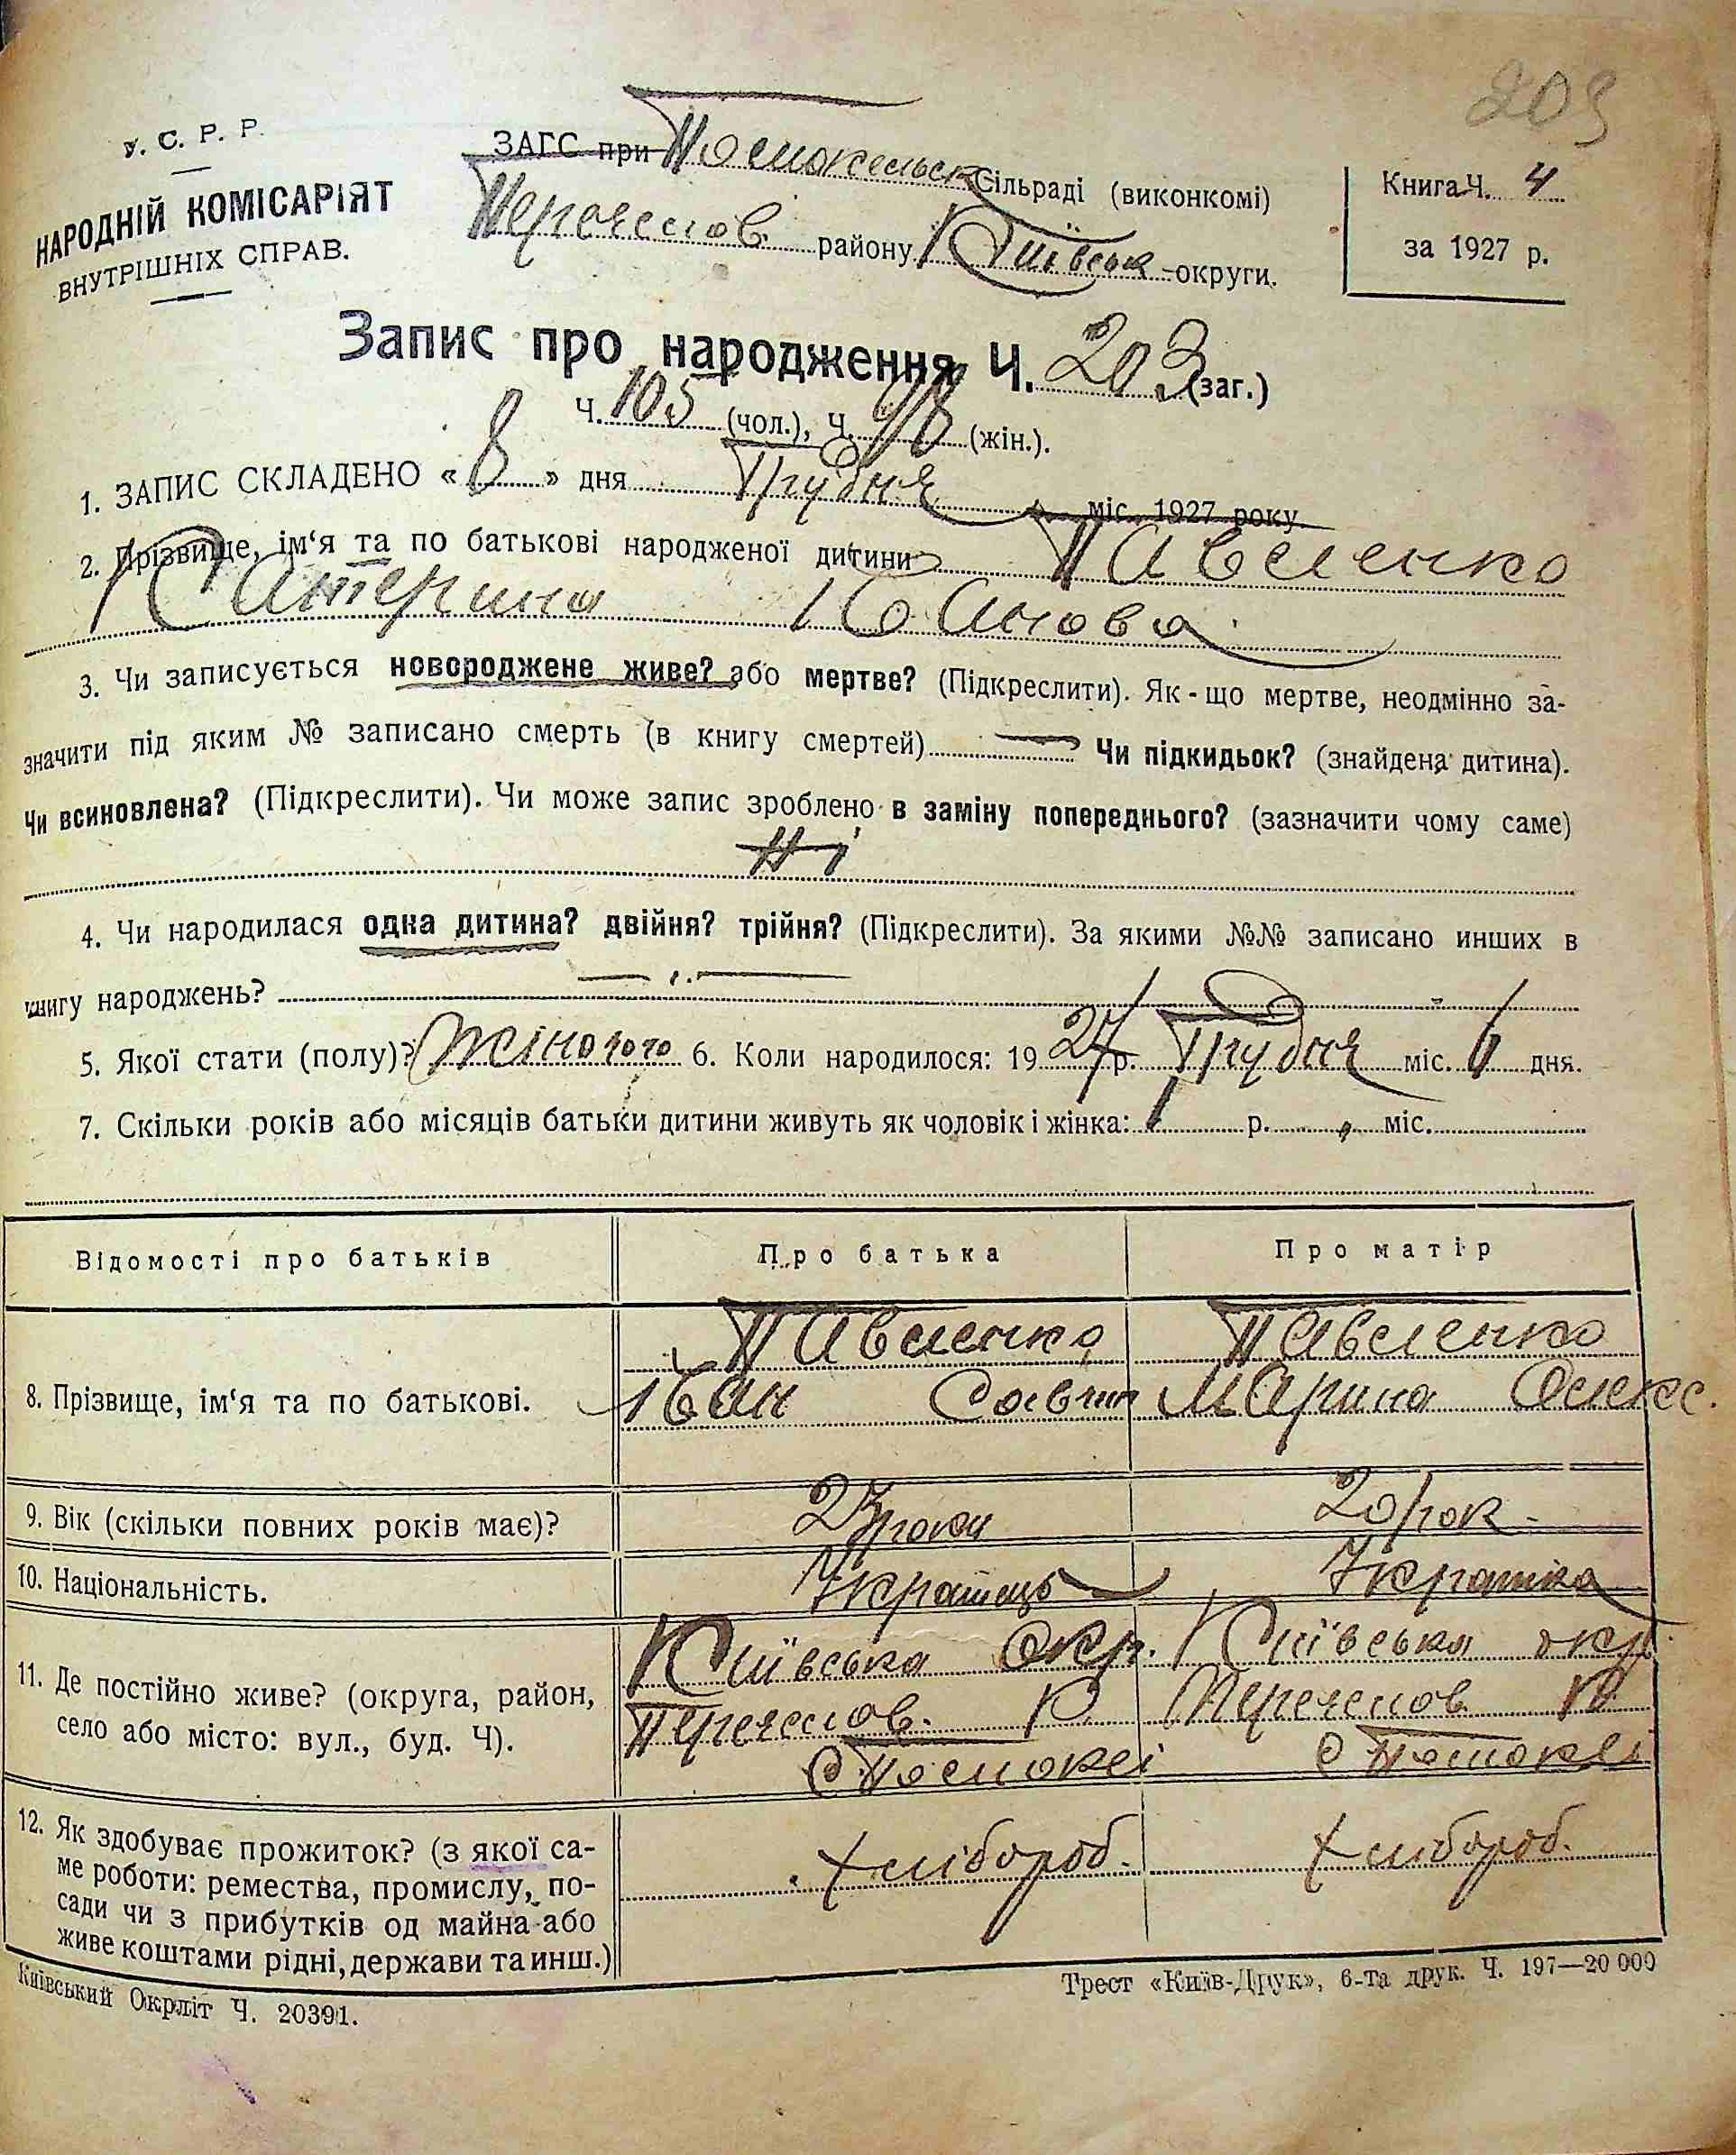 209
У. С. Р. Р.
НАРОДНІЙ КОМІСАРІЯТ
ВНУТРІШНІХ СПРАВ.
ЗАГС при Сільраді (виконкомі)
району Київськ округи.
Книга Ч. 4
за 1927 р.
Запис про народження Ч. 203 (заг.)
Ч. 105 (чол.), Ч. 98 (жін.).
1. ЗАПИС СКЛАДЕНО « 8 » дня Грудня міс. 1927 року
2. Прізвище, ім‘я та по батькові народженої дитини Павленко
Катерина Іванова
3. Чи записується новороджене живе? або мертве? (Підкреслити). Як-що мертве, неодмінно за-
значити під яким № записано смерть (в книгу смертей) — Чи підкидьок? (знайдена дитина).
Чи всиновлена? (Підкреслити). Чи може запис зроблено в заміну попереднього? (зазначити чому саме)
Ні
4. Чи народилася одна дитина? двійня? трійня? (Підкреслити). За якими №№ записано инших в
книгу народжень?
5. Якої стати (полу)? Жіночого 6. Коли народилося: 1927 р. Грудня міс. 6 дня.
7. Скільки років або місяців батьки дитини живуть як чоловік і жінка: 1 р. „ міс.
Відомості про батьків Про батька Про матір
8. Прізвище, ім‘я та по батькові.
Павленко Павленко
Іван Савич Марина Олекс.
9. Вік (скільки повних років має)? 23 роки 20 рок.
10. Національність. Українець Українка
11. Де постійно живе? (округа, район,
село або місто: вул., буд. Ч).
Київська Окр. Київська окр.
Р. Р.
12. Як здобуває прожиток? (з якої са-
ме роботи: ремества, промислу, по-
сади чи з прибутків од майна або
живе коштами рідні, держави та инш.)
хлібороб. хлібороб.
Київський Окрліт Ч. 20391.
Трест «Київ-Друк», 6-та друк. Ч. 197—20 000